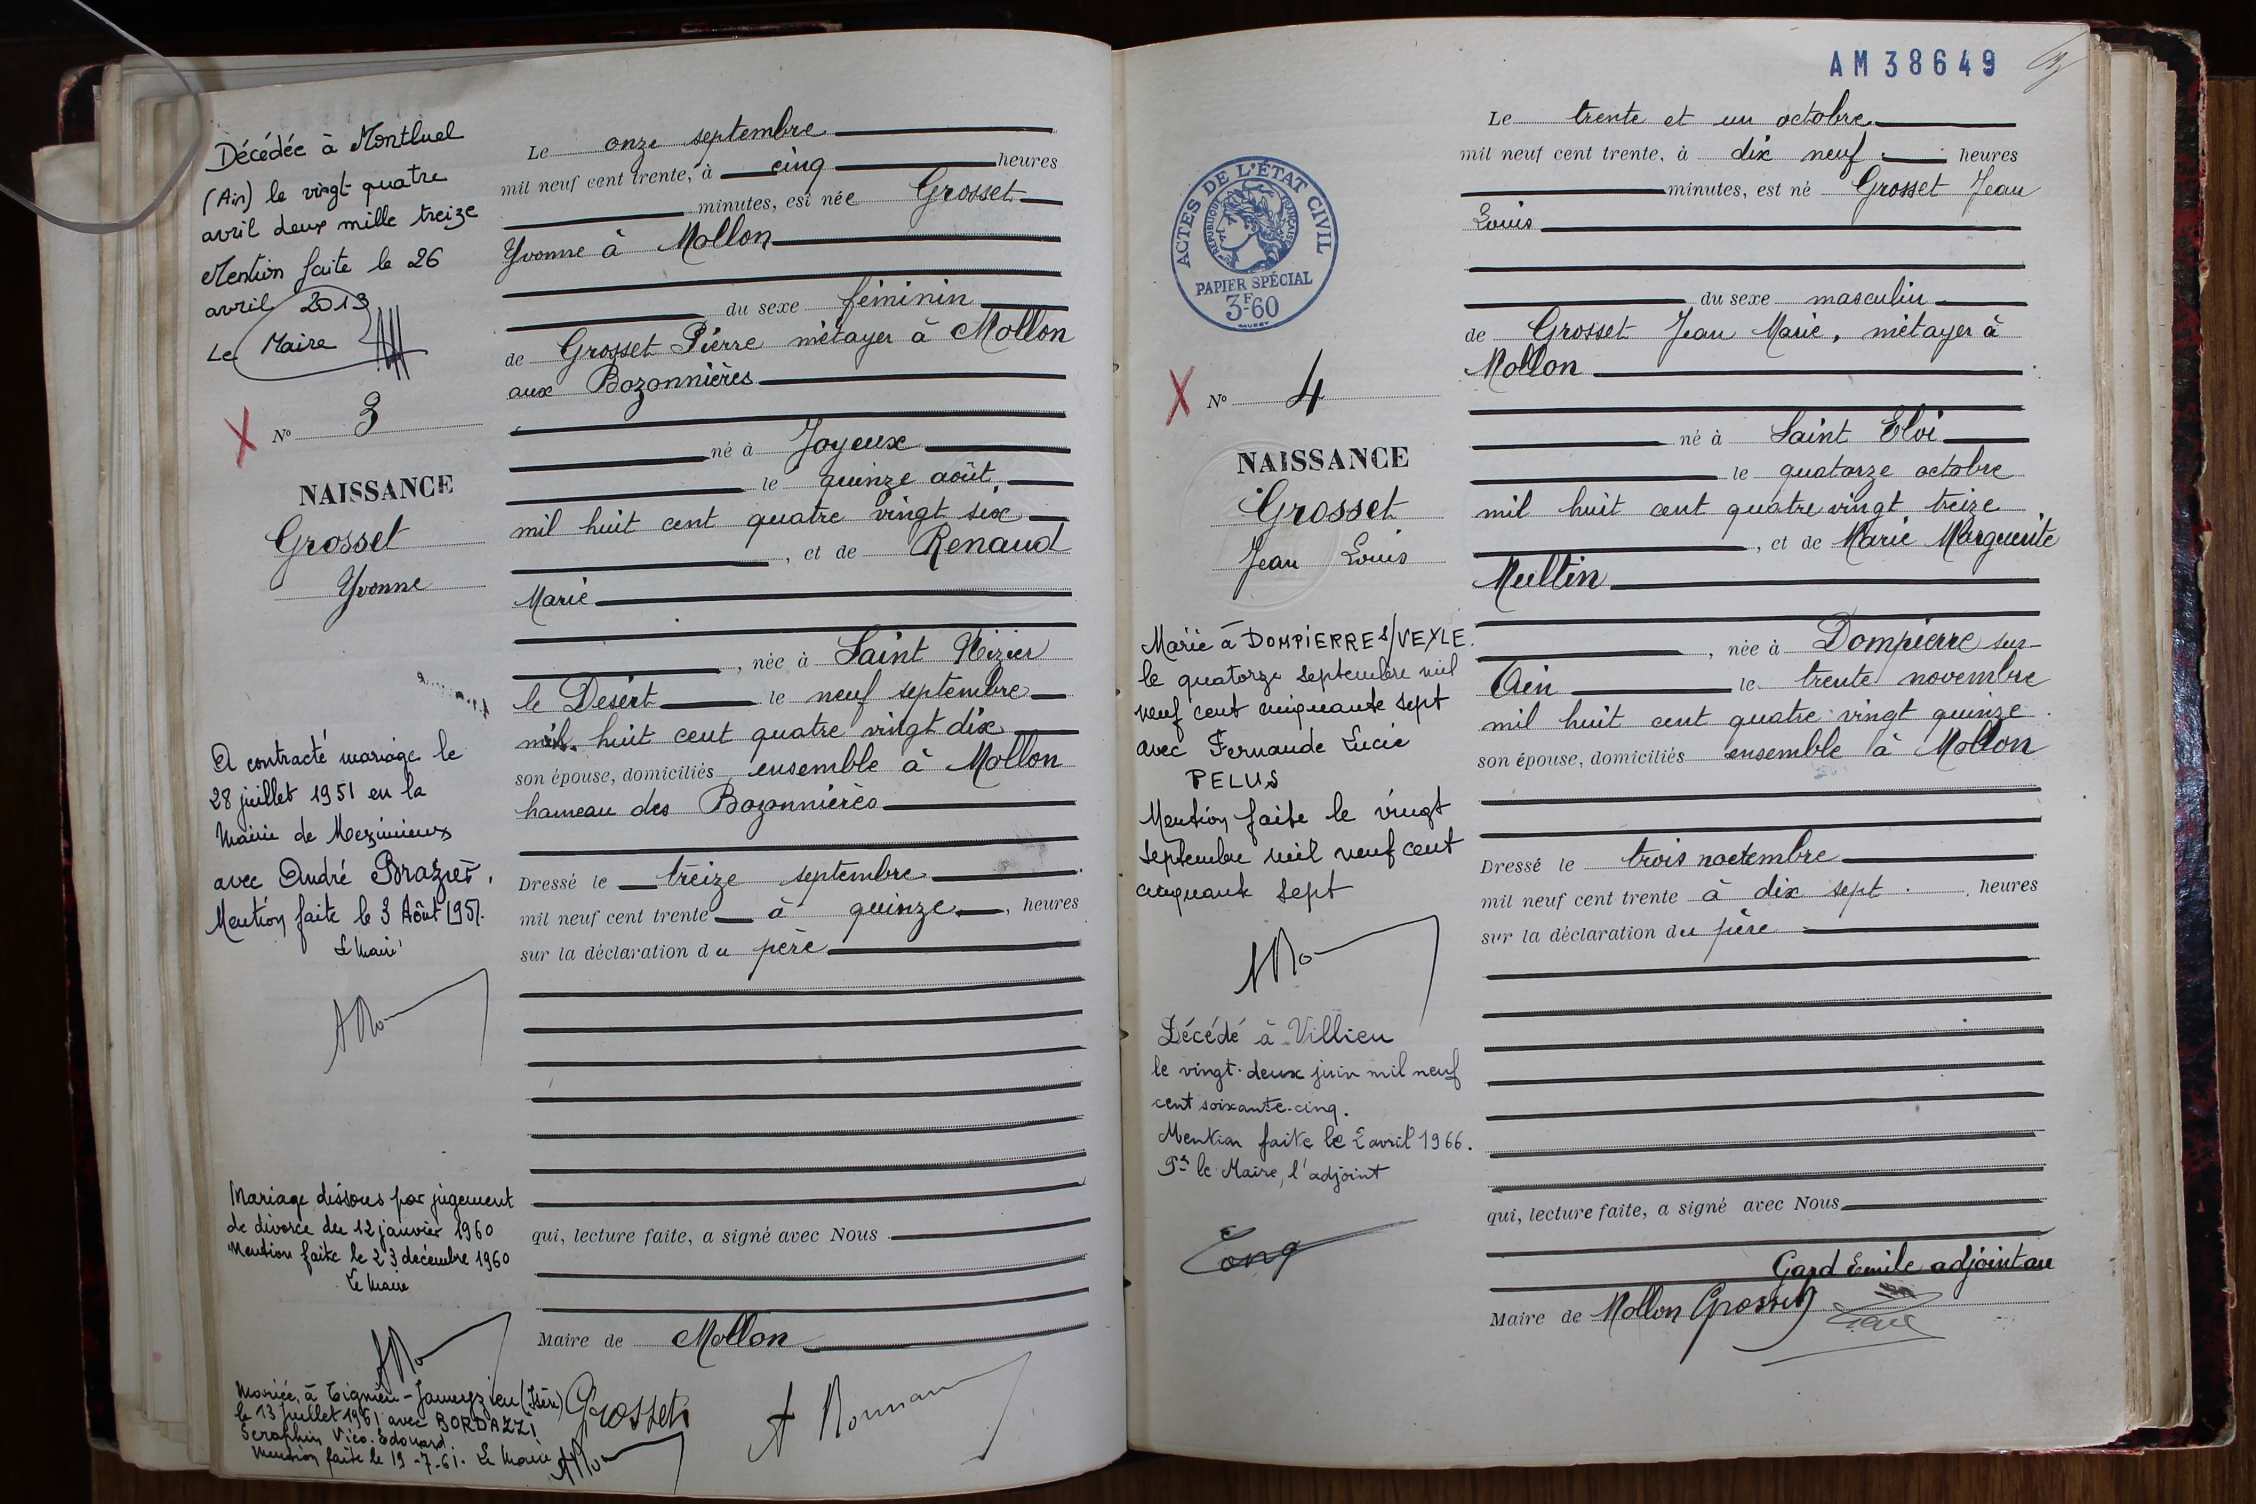 Décédée à Montluel
(Ain) le vingt-quatre
avril deux mille treize
Mention faite le 26
avril 2013
Le Maire
N° 3
NAISSANCE
Grosset
Yvonne
A contracté mariage le
28 juillet 1951 en la
Mairie de Meximieux
avec André Brazier.
Mention faite le 3 Août 1951.
Le Maire
Mariage dissous par jugement
de divorce du 12 janvier 1960
Mention faite le 23 décembre 1960
Le Maire
Mariée, à Tignieu-Jameyzieu (Isère)
le 13 Juillet 1961 avec BORDAZZI
Seraphin Vico. Edouard.
Mention faite le 19-7-61. Le Maire
Le onze septembre
mil neuf cent trente, à cinq heures
minutes, est née Grosset
Yvonne à Mollon
du sexe féminin
de Grosset Pierre métayer à Mollon
aux Bozonnières
né à Joyeux
le quinze août
mil huit cent quatre vingt six
, et de Renaud
Marie
, née à Saint Nizier
le Désert le neuf septembre
mil huit cent quatre vingt dix
son épouse, domiciliés ensemble à Mollon
hameau des Bozonnières
Dressé le treize septembre
mil neuf cent trente à quinze, heures
sur la déclaration du père
qui, lecture faite, a signé avec Nous
Maire de Mollon
Grosset
AM38649
ACTES DE L'ÉTAT CIVIL
RÉPUBLIQUE FRANÇAISE
PAPIER SPÉCIAL
3F60
N° 4
NAISSANCE
Grosset
Jean Louis
Marié à DOMPIERRE s/VEYLE.
le quatorze septembre mil
neuf cent cinquante sept
avec Fernande Lucie
PELUS
Mention faite le vingt
septembre mil neuf cent
cinquante sept
Décédé à Villieu
le vingt-deux juin mil neuf
cent soixante-cinq.
Mention faite le 2 avril 1966.
Pr le Maire, l'adjoint
Le trente et un octobre
mil neuf cent trente, à dix neuf heures
minutes, est né Grosset Jean
Louis
du sexe masculin
de Grosset Jean Marie, métayer à
Mollon
né à Saint Eloi
le quatorze octobre
mil huit cent quatre vingt treize
, et de Marie Marguerite
Multin
, née à Dompierre sur
Ain le trente novembre
mil huit cent quatre vingt quinze
son épouse, domiciliés ensemble à Mollon
Dressé le trois novembre
mil neuf cent trente à dix sept heures
sur la déclaration du père
qui, lecture faite, a signé avec Nous
Gard Emile adjoint au
Maire de Mollon Grosset